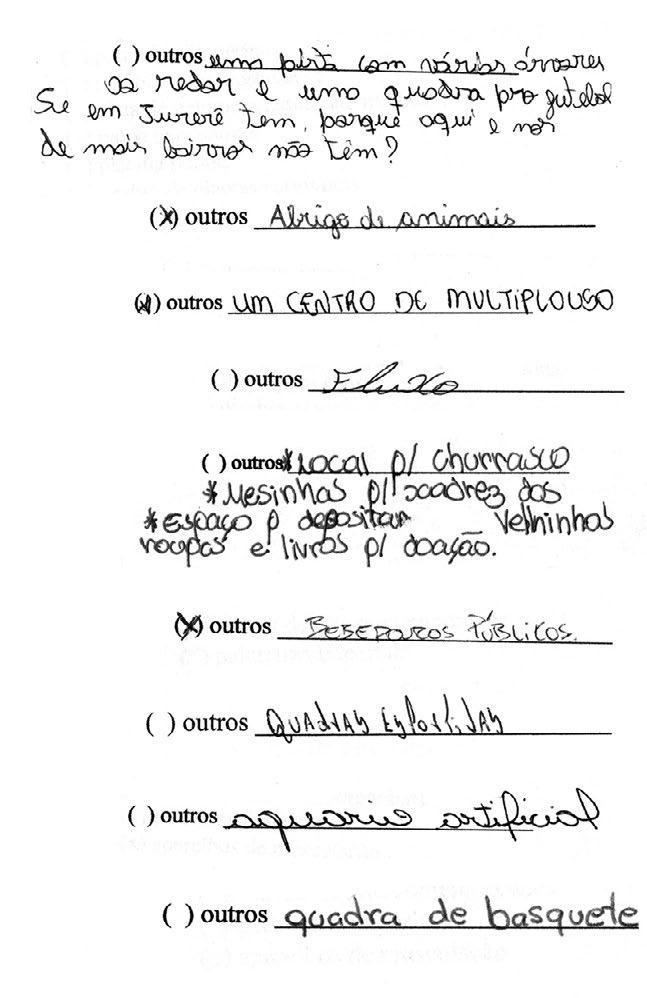 ( ) outros uma pista com várias árvores
ao redor e uma quadra pro futebol
Se em Jurerê tem, porque aqui e nos
de mais bairros não têm?
(X) outros Abrigo de animais
(X) outros UM CENTRO DE MULTIPLOUSO
( ) outros Fluxo
( ) outros *Local p/ churrasco
*Mesinhas p/ xadrez dos
*Espaço p depositar velhinhos
roupas e livros p/ doação.
(X) outros BEBEDOUROS PÚBLICOS.
( ) outros QUADRAS Esportivas
( ) outros aquario artificial
( ) outros quadra de basquete